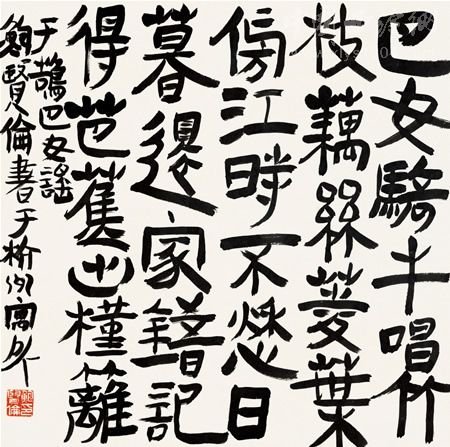 巴女騎牛唱竹
枝藕絲菱葉
傍江時不愁日
暮還家錯記
得芭蕉出槿籬
于鵠巴女謠
鮑賢倫書于